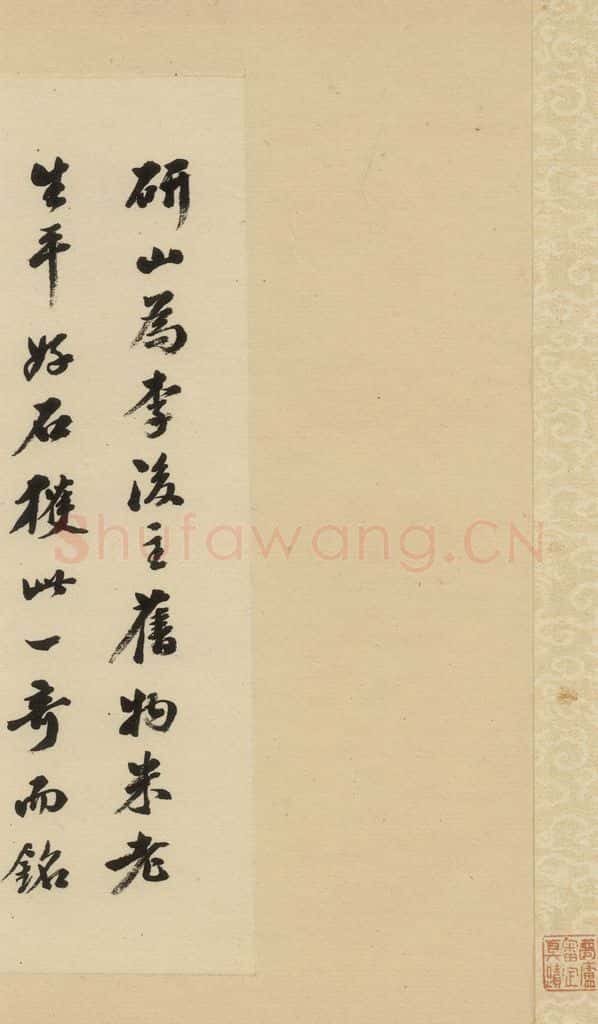 研山為李後主舊物米老
生平好石獲此一奇而銘
Shufawang.CN